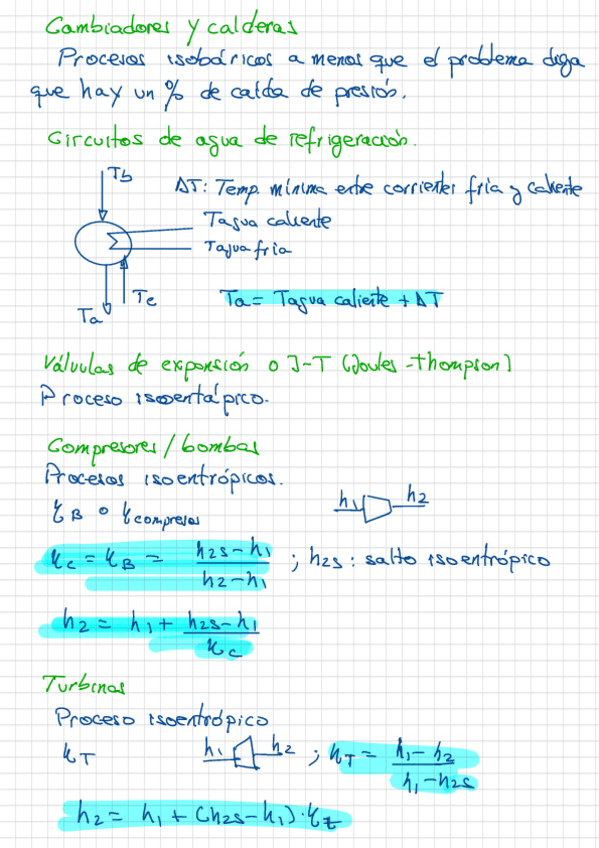 Cambiadores y calderas
Procesos isobáricos a menos que el problema diga
que hay un % de caída de presión.
Circuitos de agua de refrigeración.
Tb
ΔT: Temp. mínima entre corrientes fría y caliente
Tagua caliente
Tagua fría
Ta
Te
Ta = Tagua caliente + ΔT
Válvulas de expansión o J-T (Joules-Thompson)
Proceso isoentálpico.
Compresores/bombas
Procesos isoentrópicos.
ηB o ηcompresor
h1 h2
ηc = ηB = (h2s - h1) / (h2 - h1) ; h2s: salto isoentrópico
h2 = h1 + (h2s - h1) / ηc
Turbinas
Proceso isoentrópico
ηT h1 h2 ; ηT = (h1 - h2) / (h1 - h2s)
h2 = h1 + (h2s - h1) · ηt